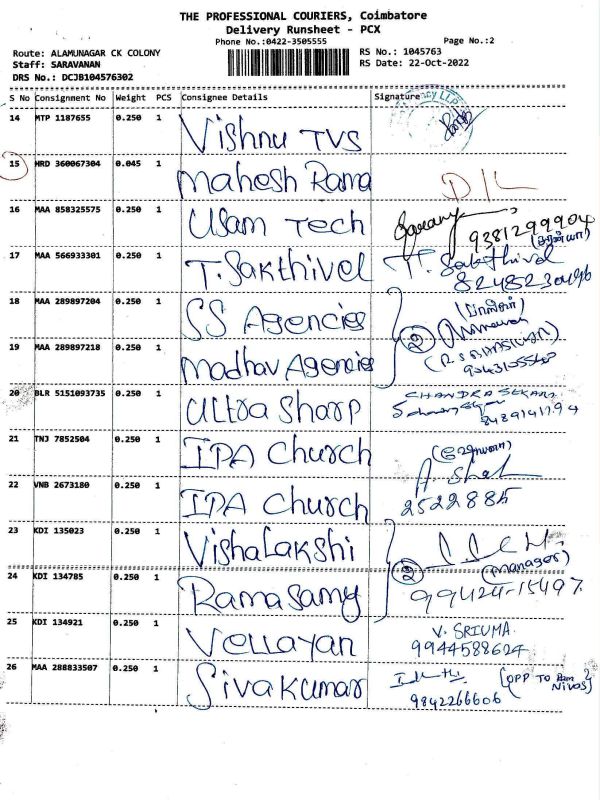 THE PROFESSIONAL COURIERS, Coimbatore
Delivery Runsheet - PCX
Phone No.:0422-3505555
Page No.:2
Route: ALAMUNAGAR CK COLONY
RS No.: 1045763
Staff: SARAVANAN
RS Date: 22-Oct-2022
DRS No.: DCJB104576302
S No Consignment No Weight PCS Consignee Details Signature
14 MTP 1187655 0.250 1 Vishnu TVS
15 MRD 360067304 0.045 1 Mahesh Rama D/L
16 MAA 858325575 0.250 1 Usam Tech
9381299904
17 MAA 566933301 0.250 1 T. Sakthivel T. Sakthivel
8248230496
18 MAA 289897204 0.250 1 SS Agencies
2
19 MAA 289897218 0.250 1 Madhav Agencies
20 BLR 5151093735 0.250 1 Ultra Sharp CHANDRA SEKARA
8489141194
21 TNJ 7852504 0.250 1 IPA Church
22 VNB 2673180 0.250 1 IPA Church 2522885
23 KDI 135023 0.250 1 Vishalakshi
2 (manager)
24 KDI 134785 0.250 1 Ramasamy 99424-15497
25 KDI 134921 0.250 1 Vellayan V. SRIUMA
9944588624
26 MAA 288833507 0.250 1 Sivakumar (OPP TO Nivas)
9842266606